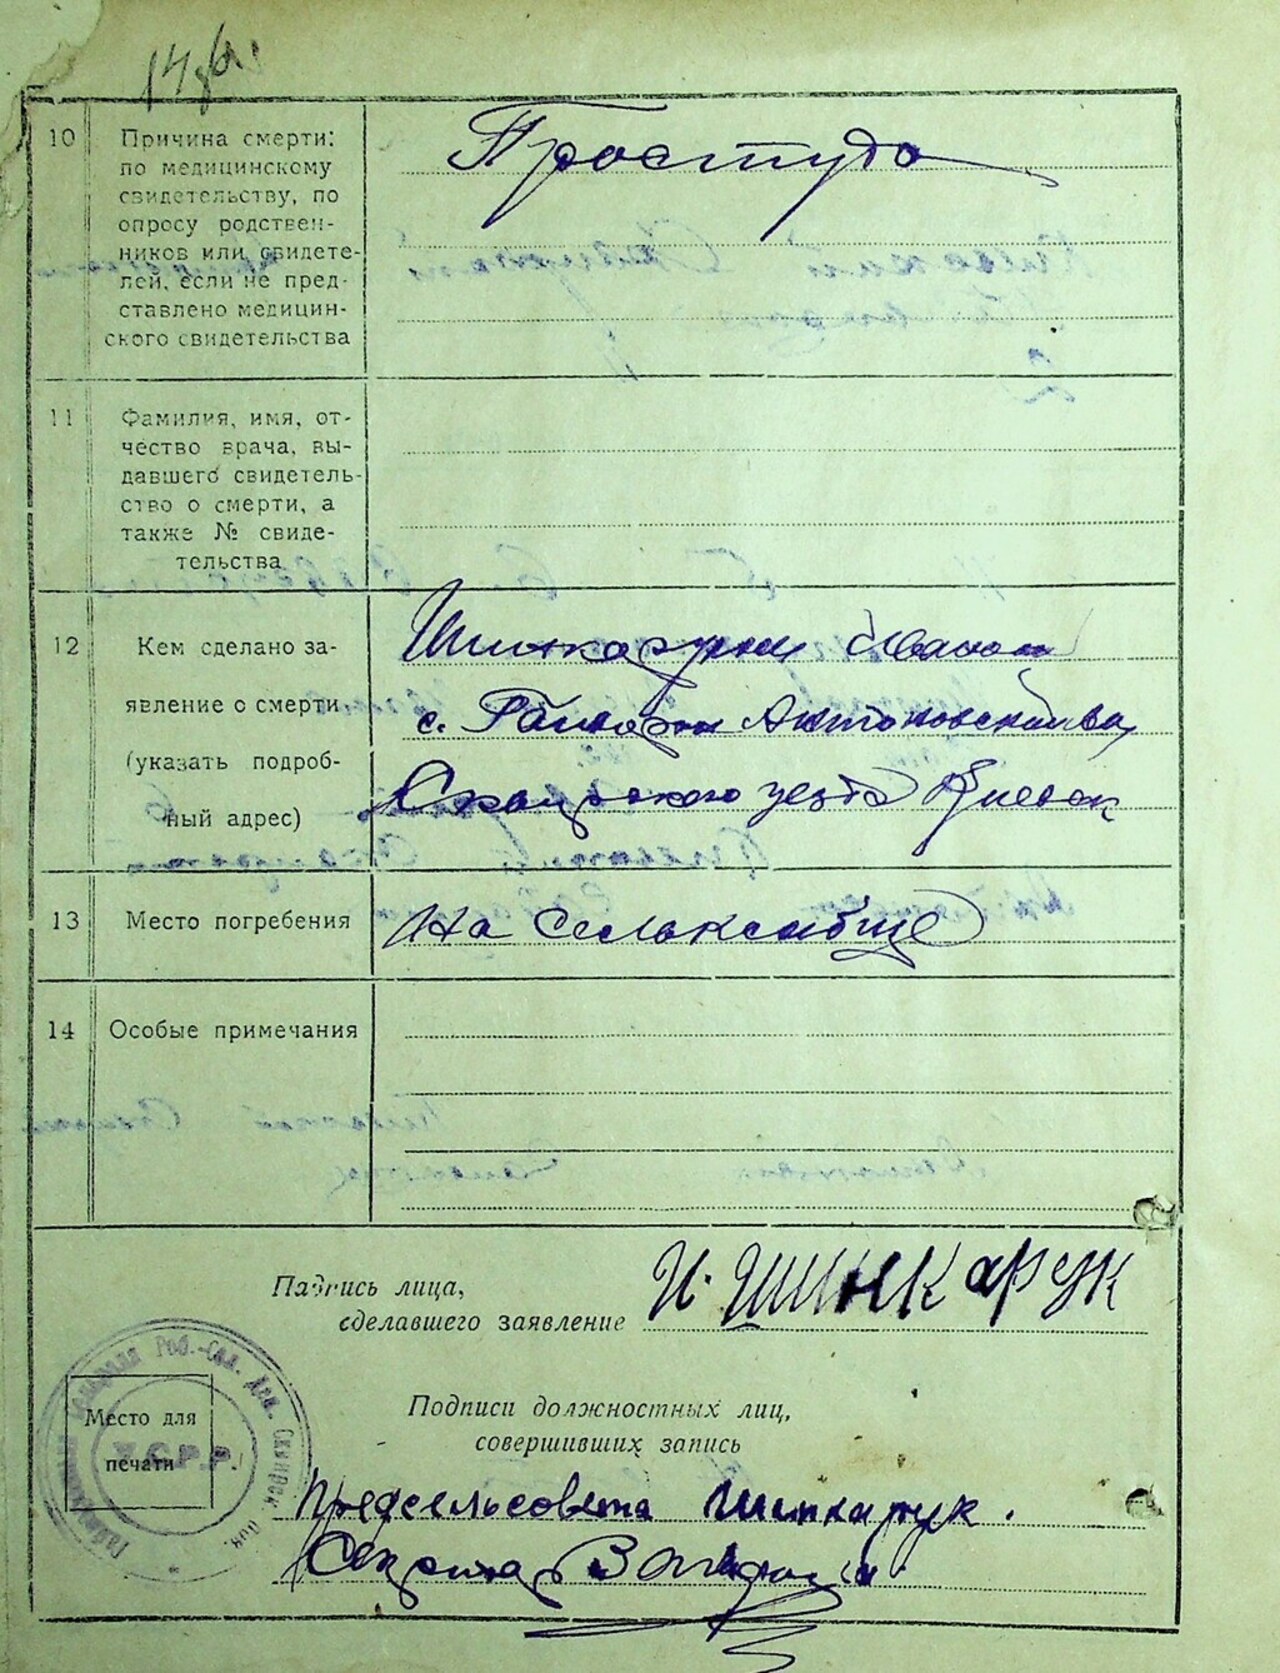 10 Причина смерти: Простуда
по медицинскому
свидетельству, по
опросу родствен-
ников или свидете-
лей, если не пред-
ставлено медицин-
ского свидетельства
11 Фамилия, имя, от-
чество врача, вы-
давшего свидетель-
ство о смерти, а
также № свиде-
тельства
12 Кем сделано за-
явление о смерти
(указать подроб-
ный адрес)
Шинкарук Иваном
с. Антоновской вол
Сквирского уезда Киевск
13 Место погребения На Сельклабище
14 Особые примечания
Подпись лица,
сделавшего заявление И. ШИНКАРУК
Место для
печати
У.С.Р.Р.
Роб.-Сел. Деп. Сквирск.
Подписи должностных лиц,
совершивших запись
Предсельсовета Шинкарук.
Секрета